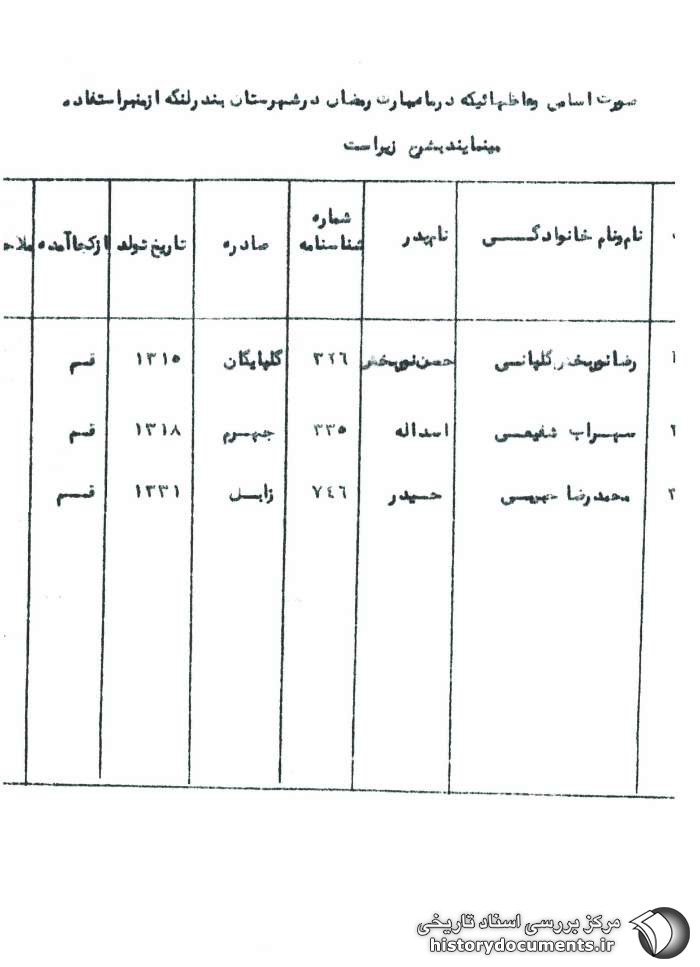 صورت اسامی وعاظهائیکه درماه مبارت رمضان درشهرستان بندرلنگه ازمنبراستفاده
مینمایندبشرح زیراست
نام ونام خانوادگی نام پدر شماره شناسنامه صادره تاریخ تولد ازکجاآمده ملاح
۱ رضانوربخش گلپائی حسن نوربخش ۳۲۶ گلپایگان ۱۳۱۵ قم
۲ سهراب شفیعی اسداله ۳۳۵ جهرم ۱۳۱۸ قم
۳ محمدرضا حیدر ۷۴۶ زابل ۱۳۳۱ قم
مرکز بررسی اسناد تاریخی
historydocuments.ir